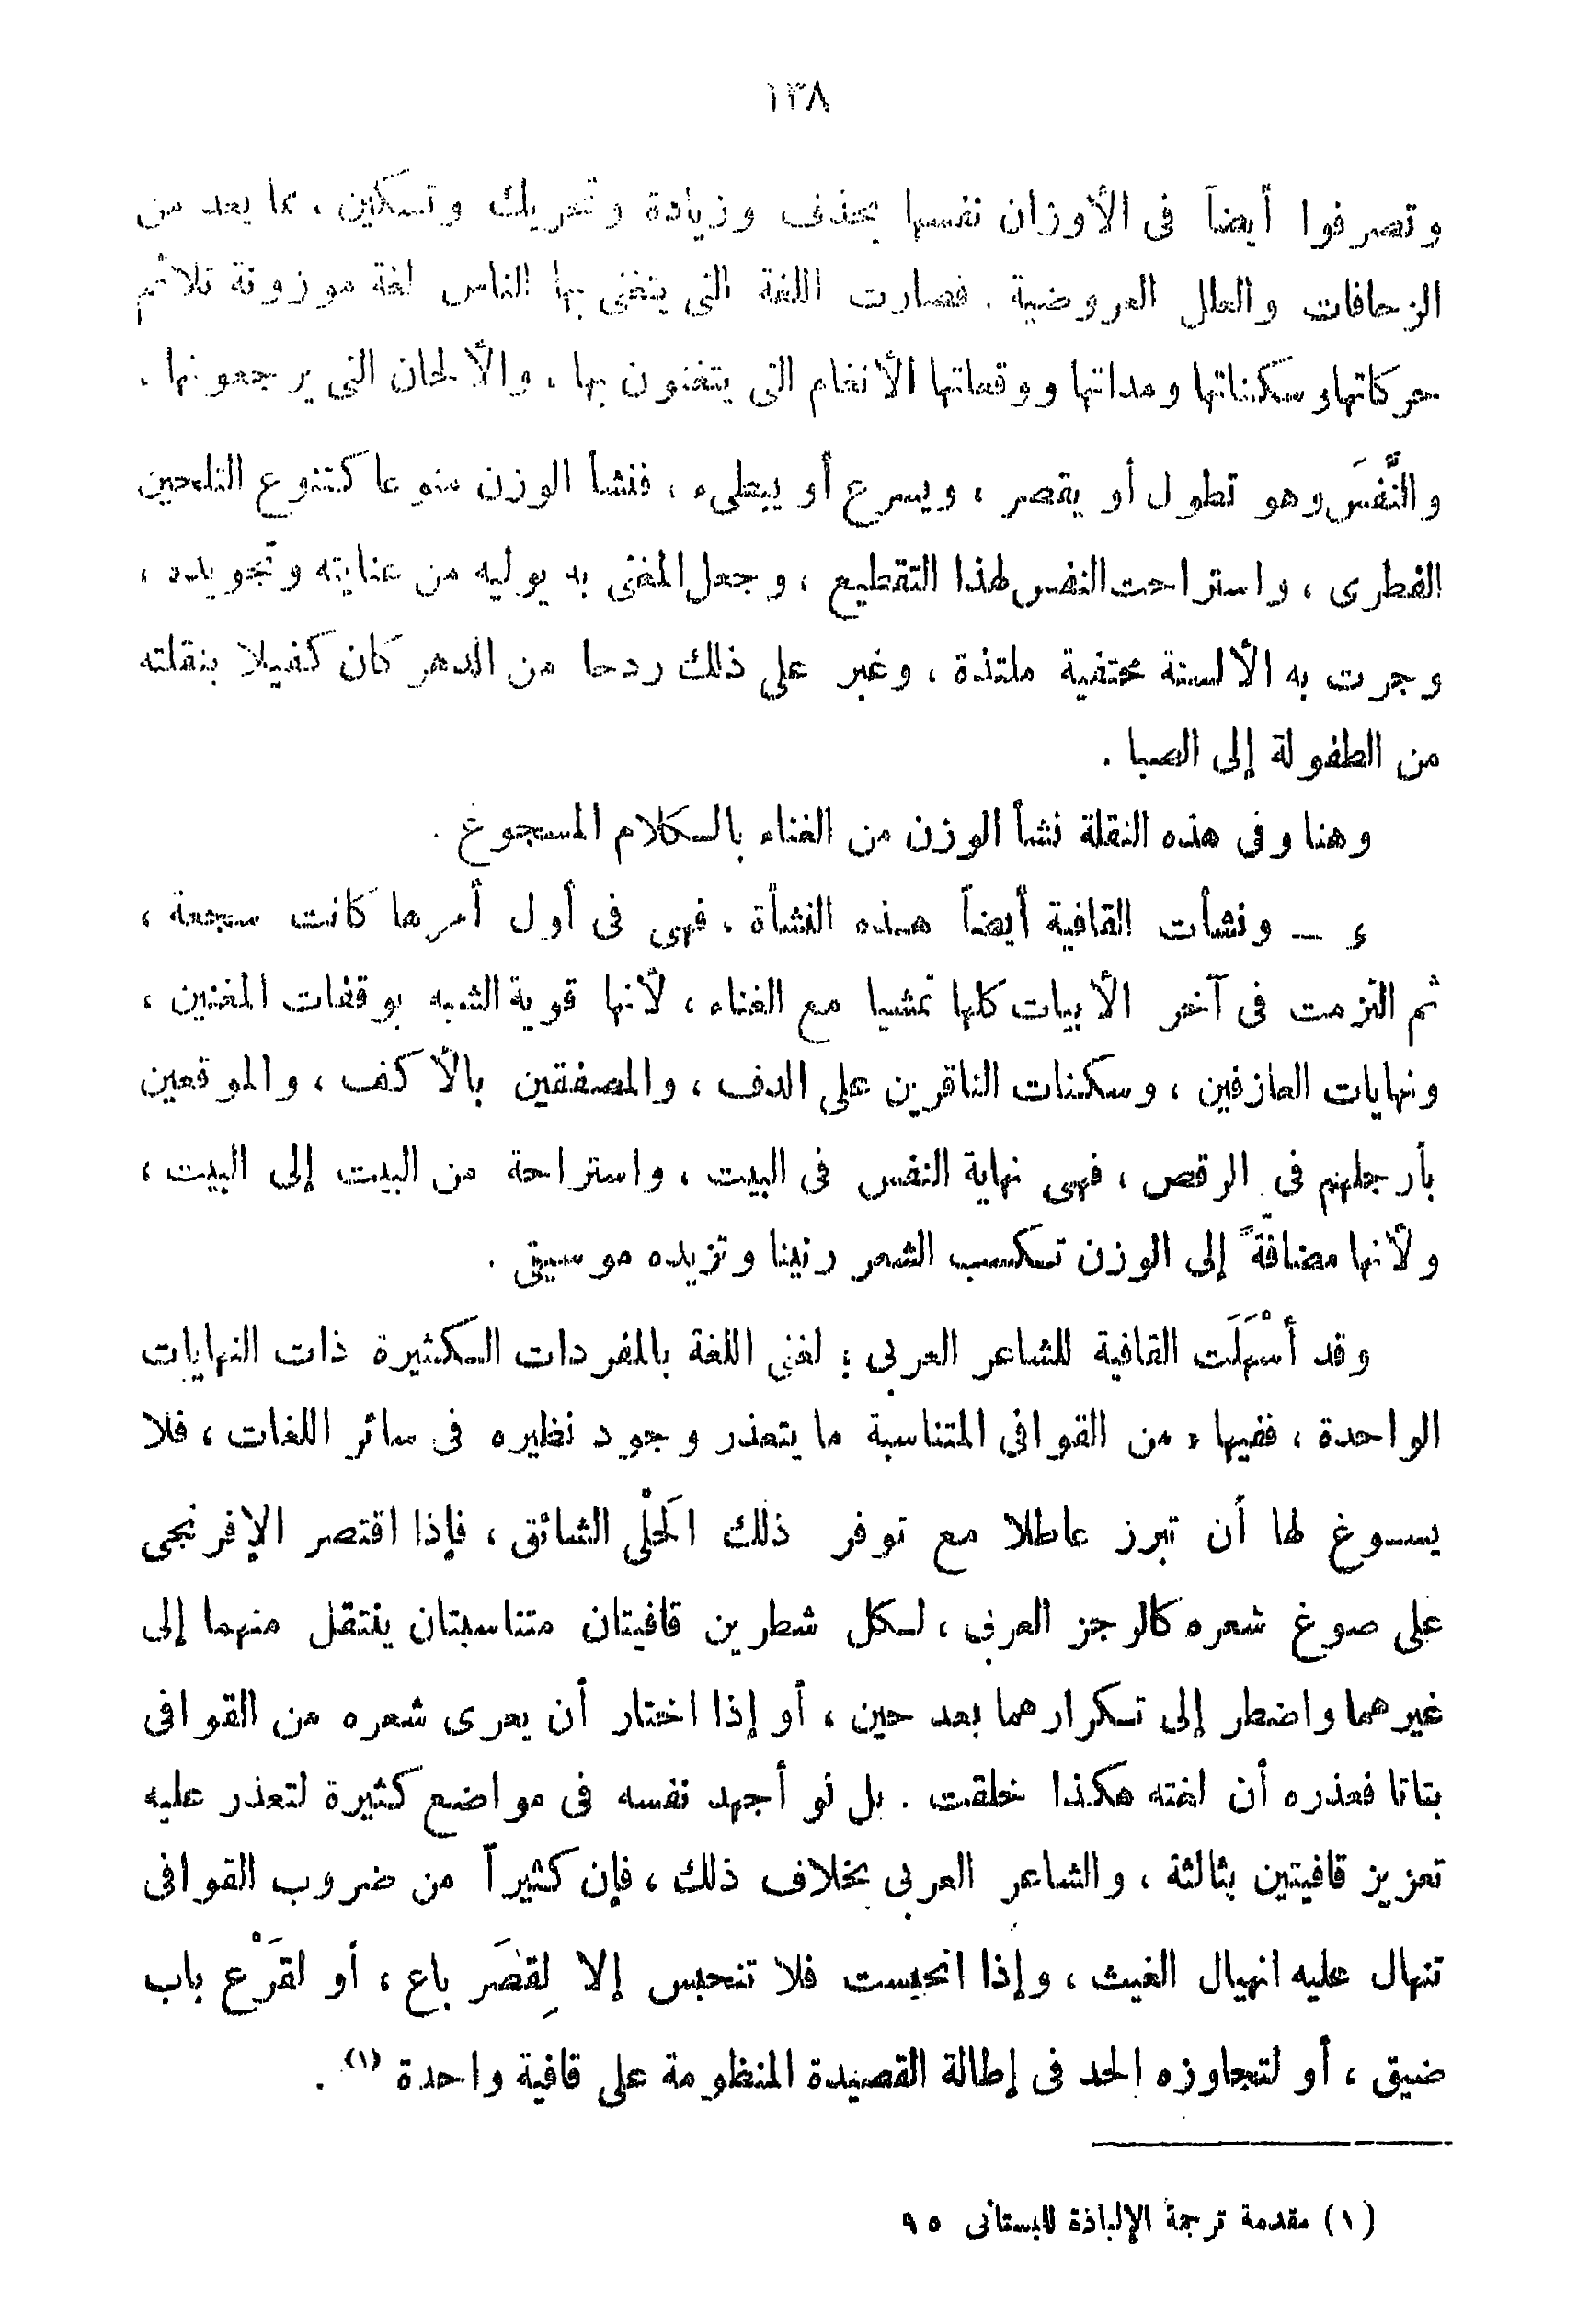 ١٣٨
وتصرفوا أيضاً فى الأوزان نفسها بحذف وزيادة وتحريك وتسكين ، مما يعد من
الزحافات والعلل العروضية . فصارت اللغة التى يتغنى بها الناس لغة موزونة تلائم
حركاتها وسكناتها ومداتها ووقفاتها الأنغام التى يتغنون بها ، والألحان التى يرجعونها ،
والنَّفَس وهو تطول أو يقصر ، ويسرع أو يبطىء ، فنشأ الوزن منوعا كتنوع التلحين
الفطرى ، واستراحت النفس لهذا التقطيع ، وجعل المغنى به يوليه من عنايته وتجويده ،
وجرت به الألسنة محتفية ملتذة ، وغبر على ذلك ردحا من الدهر كان كفيلا بنقلته
من الطفولة إلى الصبا .
وهنا وفى هذه النقلة نشأ الوزن من الغناء بالكلام المسجوع .
ء — ونشأت القافية أيضاً هذه النشأة ، فهى فى أول أمرها كانت سجعة ،
ثم التزمت فى آخر الأبيات كلها تمشيا مع الغناء ، لأنها قوية الشبه بوقفات المغنين ،
ونهايات العازفين ، وسكنات الناقرين على الدف ، والمصفقين بالأكف ، والموقعين
بأرجلهم فى الرقص ، فهى نهاية النفس فى البيت ، واستراحة من البيت إلى البيت ،
ولأنها مضافةً إلى الوزن تكسب الشعر رنينا وتزيده موسيقى .
وقد أَسْهَلَت القافية للشاعر العربى ؛ لغنى اللغة بالمفردات الكثيرة ذات النهايات
الواحدة ، ففيها « من القوافى المتناسبة ما يتعذر وجود نظيره فى سائر اللغات ، فلا
يسوغ لها أن تبرز عاطلا مع توفر ذلك الحَلْى الشائق ، فإذا اقتصر الإفرنجى
على صوغ شعره كالرجز العربى ، لكل شطرين قافيتان متناسبتان ينتقل منهما إلى
غيرهما واضطر إلى تكرارهما بعد حين ، أو إذا اختار أن يعرى شعره من القوافى
بتاتا فعذره أن لغته هكذا خلقت . بل لو أجهد نفسه فى مواضع كثيرة لتعذر عليه
تعزيز قافيتين بثالثة ، والشاعر العربى بخلاف ذلك ، فإن كثيراً من ضروب القوافى
تنهال عليه انهيال الغيث ، وإذا انحبست فلا تنحبس إلا لِقصَر باع ، أو لقَرْع باب
ضيق ، أو لتجاوزه الحد فى إطالة القصيدة المنظومة على قافية واحدة (١) .
(١) مقدمة ترجمة الإلياذة للبستانى ٩٥